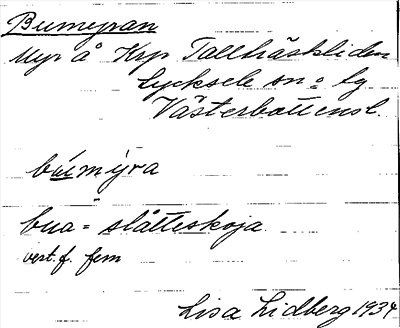 Bumyran
Myr å Krp Tallträskliden
Lycksele sn o lg
Västerbottensl.
búmýra
bua = slåtteskoja
vest. f. fem
Lisa Lidberg 1934